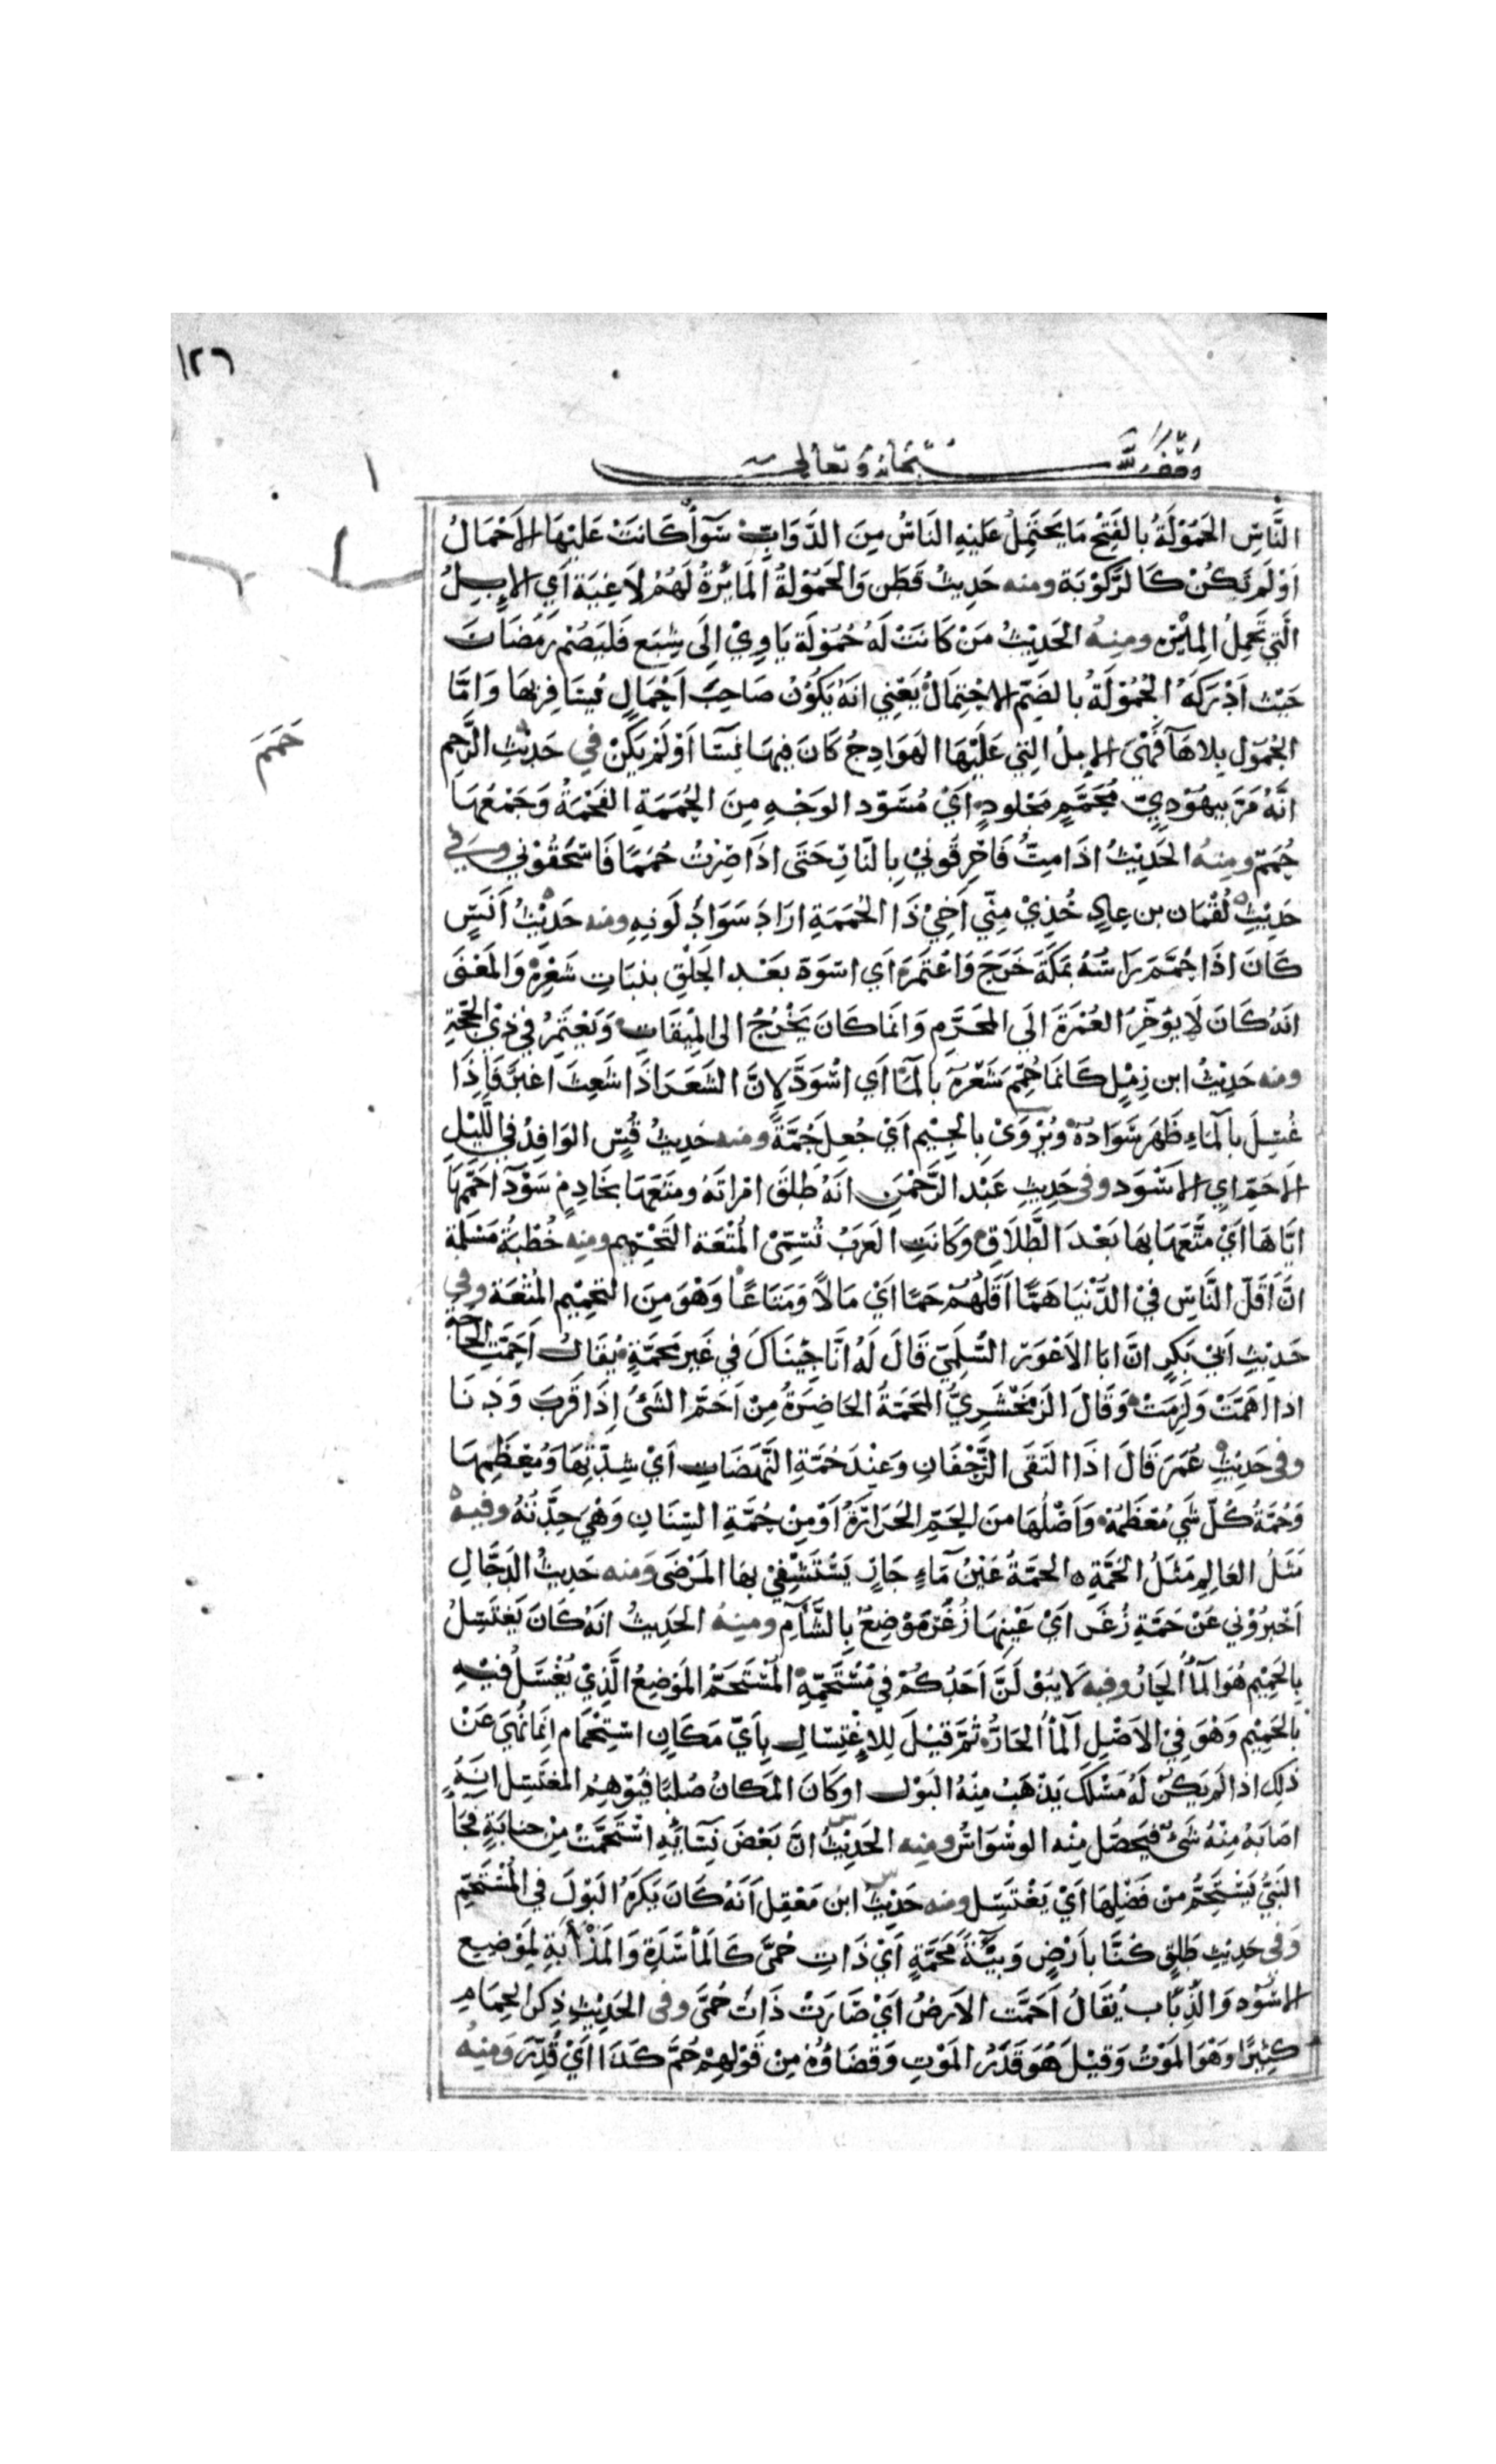 ١٢٦
وقف لله سبحانه وتعالى
النَّاسِ الحَمُوْلَةُ بالفَتْحِ مَا يَحْتَمِلُ عَلَيْهِ النَاسُ مِنَ الدَّوَابِّ سَوَآءٌ كَانَتْ عَلَيْهَا الاَحْمَالُ
اَوْ لَمْ تَكُنْ كَالرَّكُوْبَة ومنه حَدِيْثُ قَطَن وَالحَمُوْلَةُ المَائِرَةُ لَهُمْ لَاغِيَة اَي الإبِلُ
الَّتِي تَحْمِلُ المِيْرَه ومِنْهُ الحَدِيْثُ مَنْ كَانَتْ لَهُ حُمُوْلَة يَاوِيْ اِلَى شِبَع فَلْيَصُمْ رَمَضَانَ
حَيْث اَدْرَكَهُ الحُمُوْلَةُ بالضَمّ الاحْتِمَالُ يَعْنِي انَهُ يَكُوْنُ صَاحِبَ اَحْمَالٍ يُسَافِر بهَا وَامَّا
الحُمُوْل بِلا هَآ فَهْيَ الإبِلُ التِي عَلَيْهَا الهَوَادِجُ كَانَ فِيهَا نِسَآ اَوْ لَمْ يَكُنْ في حَدِيْثِ الرَّجْم
حَمَمَ
انَّهُ مَرَّ بِيهُوْدِيّ مُحَمَّمٍ مَجْلودٍ اَيْ مُسْوَدّ الوَجْهِ مِنَ الحُمَمَةِ الفَحْمَةُ وَجَمْعُهَا
حُمَمٌ ومِنْهُ الحَدِيْثُ اذَا مِتُّ فَاحْرِقُونِيْ بِالنَّارِ حَتَى اذَا صِرْتُ حُمَمًا فَاسْحَقُوْنِي وفي
حَدِيْثِ لُقْمَان بن عادٍ خُذِيْ مِنِّي اَخِيْ ذَا الحُمَمَةِ ارَادَ سَوَادَ لَونِهِ ومنه حَدِيْثُ اَنَسٍ
كَانَ اذَا حُمِّمَ رَاسُهُ بمَكَّةَ خَرَجَ وَاعْتَمَرَ اَي اسْوَدّ بَعْد الحَلْقِ بنبَاتِ شَعْرِهْ وَالمَعْنَى
انَهُ كَانَ لَا يُؤخِّرُ العُمْرَةَ الَى المحَرَّم وَانَمَا كَانَ يَخْرُجُ الى المِيْقَاتِ وَيَعْتَمِرُ في ذِيْ الحِجَّةِ
ومنه حَدِيْثُ ابن زِمْلٍ كَانَمَا حُمِّمَ شَعْرُهُ بالمآءِ اَي اسْوَدَّ لِانَّ الشَعَرَ اذَا شَعِثَ اغبَرَّ فَاِذَا
غُسِلَ بالمَآءِ ظَهَرَ سَوَادُهُ وَيُرْوَى بِالجِيْم اَيْ جُعِلَ جُمَّةً ومنه حَدِيثُ قُسٍّ الوَافِدُ فِي اللَّيْلِ
الاحَمِّ اي الاسْوَد وفي حَدِيْثِ عَبْد الرَّحْمٰن انَهُ طَلَقَ امْرَاتَهُ ومَتَعَهَا بخَادِمٍ سَوْدَآ حَمَّمَهَا
ايَّاهَا اَيْ مَتَّعَهَا بِهَا بَعْدَ الطَّلَاقِ وكَانَتِ العَرَبُ تُسَمِّي المُتْعَة التَحْمِيم ومنه خُطْبَةُ مَسْلَمَة
انَّ اَقَلّ النَّاسِ فيْ الدُّنْيَا هَمًّا اَقَلُهُمْ حَمًّا اَيْ مَالًا وَمَتَاعًا وَهْوَ مِنَ التحْمِيْم المُتْعَة وفي
حَدِيْثِ اَبي بَكْرٍ انَّ ابَا الاَعْوَر السُّلَمِيّ قَالَ لَهُ انَّا جِيْنَاكَ فِي غَيْر مُحِمَّةٍ يُقَالُ اَحَمَّتِ الحَاجَة
اذا اهَمَّتْ وَلَزِمَتْ وَقَالَ الزَمَخْشَرِيُّ المُحِمَّةُ الحَاضِرَةُ مِنْ اَحَمَّ الشَئُ اِذَا قَرُبَ وَدَنَا
وفي حَدِيْثِ عُمَرَ قَالَ اذَا التَقَى الزَّحْفَانِ وَعِنْدَ حُمَّةِ النَّهَضَاتِ اَيْ شِدَّتِهَا وَمُعْظَمِهَا
وَحُمَّةُ كُلّ شَي مُعْظَمُهُ وَاَصْلُهَا منَ الحَمّ الحَرَارَةُ اَوْ مِنْ حُمَّةِ السِّنَانِ وَهْيَ حِدَّتُهُ وفيه
مَثَلُ العَالِمِ مَثَلُ الحَمَّةِ ه الحَمَّةُ عَيْنُ مَآءٍ حَارّ يَسْتَشْفِيْ بهَا المَرْضَى ومنه حَديثُ الدَجَّالِ
اَخْبِرُوْنِي عَنْ حَمَّةِ زُغَر اَيْ عَيْنِهَا زُغَرُ مَوْضِعٌ بِالشَّامِ ومِنْهُ الحَدِيثُ انَهُ كَانَ يَغْتَسِلُ
بِالحَمِيْم هُوَ المَآُ الحَارُ وفيه لَا يَبُوْلَنَّ اَحَدُكُمْ فِي مُسْتَحَمِّهِ المُسْتَحَمُّ المَوْضِعُ الَّذِيْ يُغْتَسَلُ فِيْهِ
بِالحَمِيْم وَهْوَ فِي الاَصْلِ المآُ الحَارُّ ثُمَّ قِيْلَ لِلاِغْتِسَالِ بِاَيّ مَكَانٍ اسْتِحْمَام اِنَمَا نُهِيَ عَنْ
ذلِكَ اذَا لَم يَكُنْ لَهُ مَسْلَكٌ يَذْهَبُ مِنْهُ البَوْل اوكَانَ المَكانُ صُلْبًا فَيُوْهِمُ المغْتَسِل انَهُ
اصَابَهُ مِنْهُ شَيْ فَيَحصُل مِنْه الوسْوَاسُ ومِنه الحَدِيْثُ انَّ بَعْضَ نِسَائِهِ اسْتَحَمَّتْ مِنْ جنابَةٍ فجَآ
النَبِيُّ يَسْتَحِمُّ مِنْ فَضْلِهَا اَيْ يَغْتَسِل ومنه حَدِيْث ابْن مَغْفِل اَنَهُ كَانَ يَكْرَهُ البَوْلَ فِي المُسْتَحَمّ
وَفي حَدِيْثِ طَلْقٍ كُنَّا بِاَرْضٍ وَبِيْئَةً مُحَمَّةٍ اَيْ ذَاتِ حُمَّى كَالمأسَدَةِ وَالمَذْأَبَةِ لِمَوْضِعِ
الاسُوْدِ وَالذِّئَاب يُقَالُ اَحَمَّت الاَرضُ اَيْ صَارَتْ ذَاتَ حُمَّى وفي الحَدِيْثِ ذِكرُ الحِمَامِ
كثِيْرًا وَهْوَ المَوْتُ وَقِيْلَ هُوَ قَدَرُ المَوْتِ وَقَضَاؤُهُ مِنْ قَوْلِهِمْ حُمَّ كَذَا اَيْ قُدِّرَ وَمِنْهُ